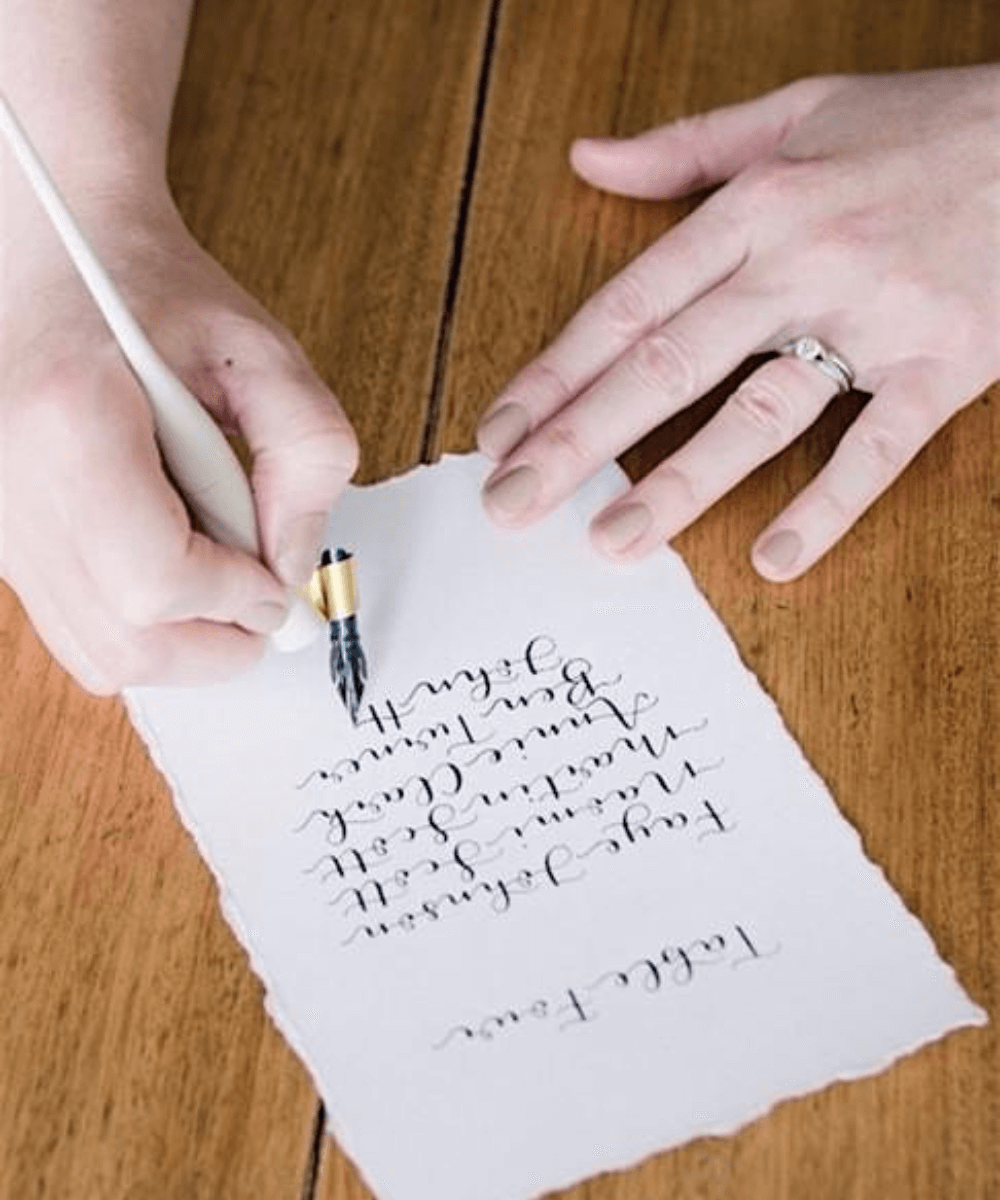 Table Four
Faye Johnson
Naomi Scott
Martin Scott
Annie Clark
Ben Turner
John H